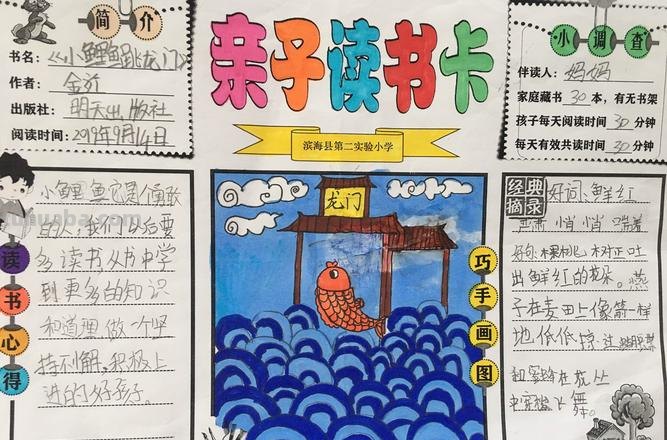 简介
书名：《小鲤鱼跳龙门》
作者：金近
出版社：明天出版社
阅读时间：2019年9月14日
亲子读书卡
滨海县第二实验小学
小调查
伴读人：妈妈
家庭藏书30本，有无书架
孩子每天阅读时间30分钟
每天有效共读时间30分钟
读书心得
小鲤鱼它是个勇敢
的人，我们以后要
多读书，从书中学
到更多的知识
和道理做一个坚
持不懈，积极上
进的好孩子。
龙门
巧手画图
经典摘录
好词：鲜红
悄悄
好句：棵桃树正吐
出鲜红的花朵。燕
子在麦田上像箭一样
地低低掠过
蜜蜂在花丛
舞。